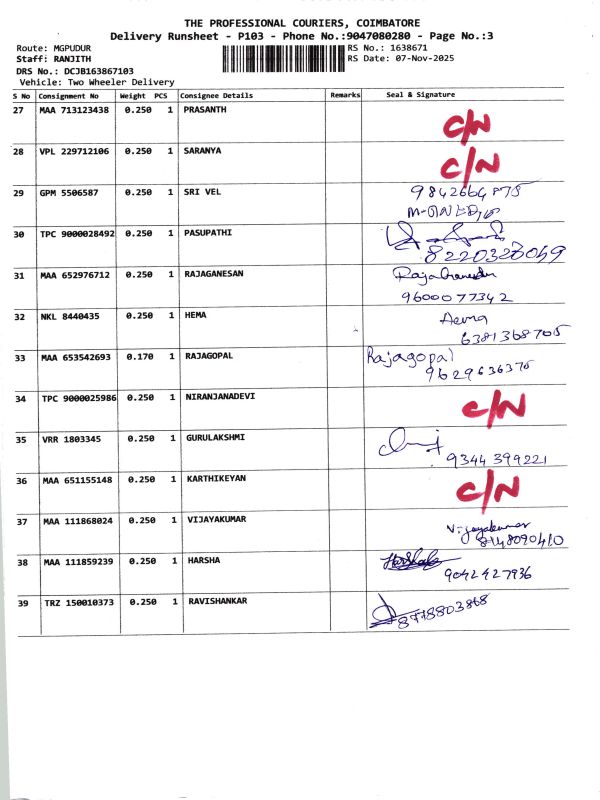 THE PROFESSIONAL COURIERS, COIMBATORE
Delivery Runsheet - P103 - Phone No.:9047080280 - Page No.:3
Route: MGPUDUR RS No.: 1638671
Staff: RANJITH RS Date: 07-Nov-2025
DRS No.: DCJB163867103
Vehicle: Two Wheeler Delivery
S No Consignment No Weight PCS Consignee Details Remarks Seal & Signature
27 MAA 713123438 0.250 1 PRASANTH C/N
28 VPL 229712106 0.250 1 SARANYA C/N
29 GPM 5506587 0.250 1 SRI VEL 9842664875
30 TPC 9000028492 0.250 1 PASUPATHI
8220328049
31 MAA 652976712 0.250 1 RAJAGANESAN
9600077342
32 NKL 8440435 0.250 1 HEMA Hema
6381368705
33 MAA 653542693 0.170 1 RAJAGOPAL Rajagopal
9629636375
34 TPC 9000025986 0.250 1 NIRANJANADEVI C/N
35 VRR 1803345 0.250 1 GURULAKSHMI
9344399221
36 MAA 651155148 0.250 1 KARTHIKEYAN C/N
37 MAA 111868024 0.250 1 VIJAYAKUMAR Vijayakumar
8148090410
38 MAA 111859239 0.250 1 HARSHA
9042427936
39 TRZ 150010373 0.250 1 RAVISHANKAR
8778803868